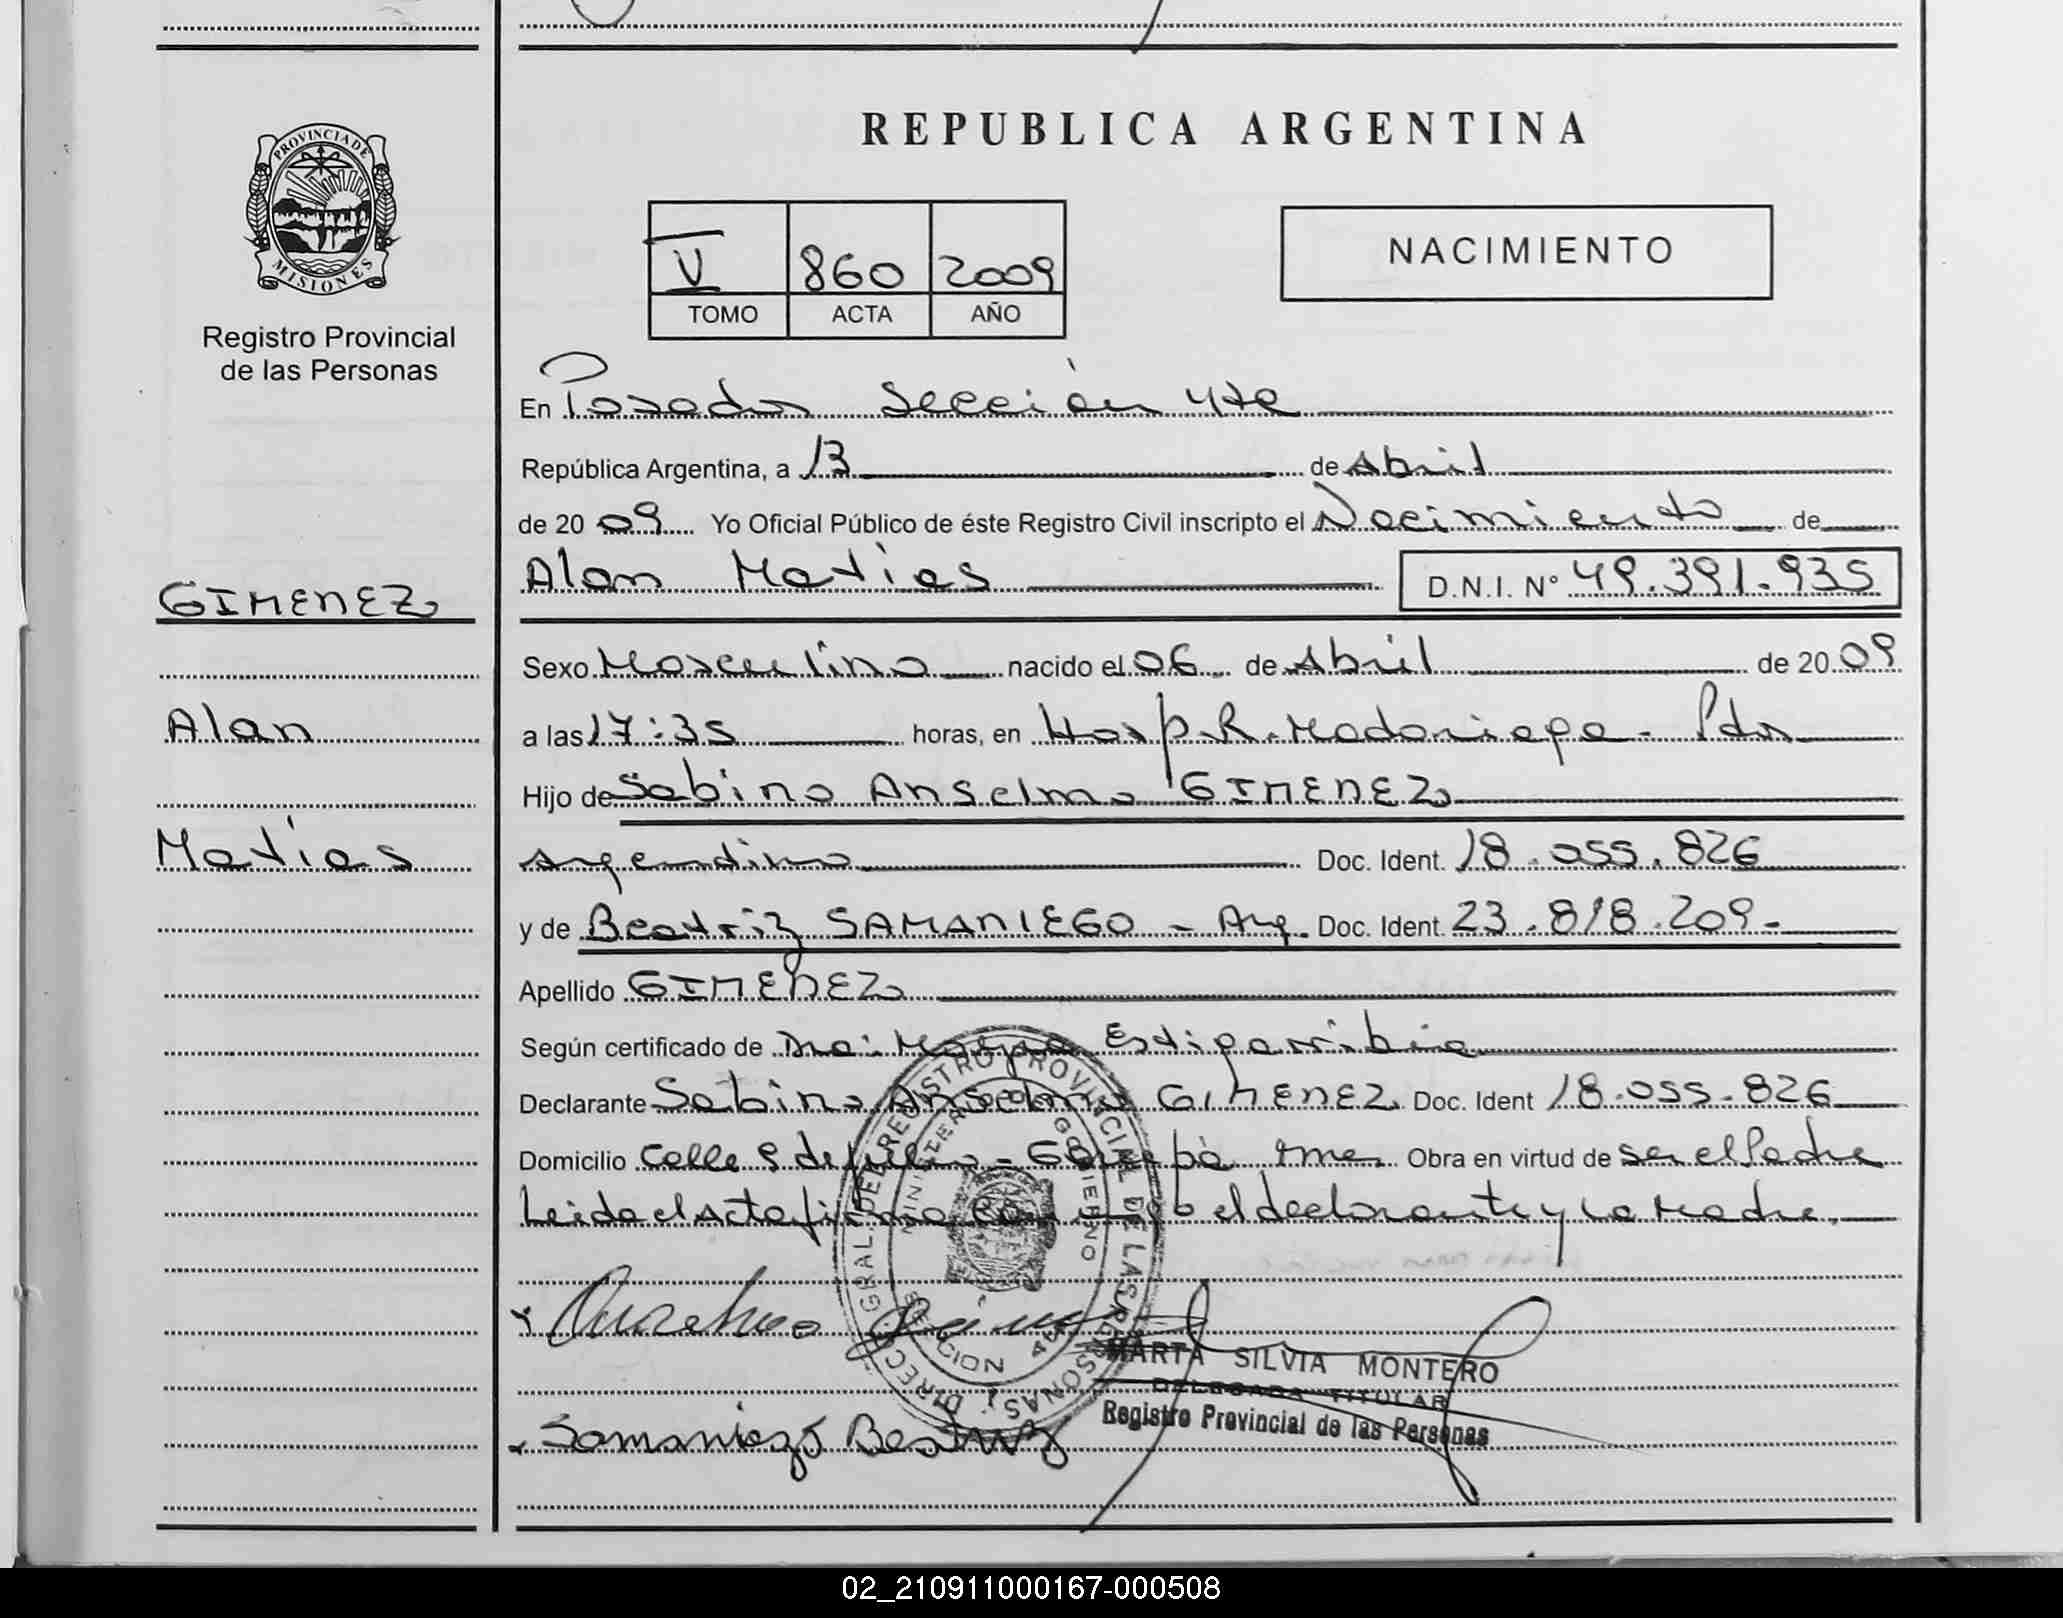 REPUBLICA ARGENTINA
PROVINCIA DE
MISIONES
Registro Provincial
de las Personas
NACIMIENTO
V 860 2009
TOMO ACTA AÑO
En Posadas Sección 4ta
República Argentina, a 13 de Abril
de 2009 Yo Oficial Público de éste Registro Civil inscripto el Nacimiento de
Alan Matías D.N.I. Nº 49.391.935
GIMENEZ
Alan
Matías
Sexo Masculino nacido el 06 de Abril de 2009
a las 17:35 horas, en Hosp. R. Madariaga - Pdas
Hijo de Sabino Anselmo GIMENEZ
Argentino Doc. Ident. 18.055.826
y de Beatriz SAMANIEGO - Arg. Doc. Ident. 23.818.209.-
Apellido GIMENEZ
Según certificado de Dra: Estigarribia
Declarante Sabino Anselmo GIMENEZ Doc. Ident 18.055.826
Domicilio Calle 9 de julio - Garupá Mnes. Obra en virtud de ser el Padre
Leida el Acta firma conmigo el declarante y la Madre.
DIRECC. GRAL. DEL REGISTRO PROVINCIAL DE LAS PERSONAS
MINISTERIO DE GOBIERNO
SECCION 4ta
MARTA SILVIA MONTERO
DELEGADA TITULAR
Registro Provincial de las Personas
Samaniego Beatriz
02_210911000167-000508